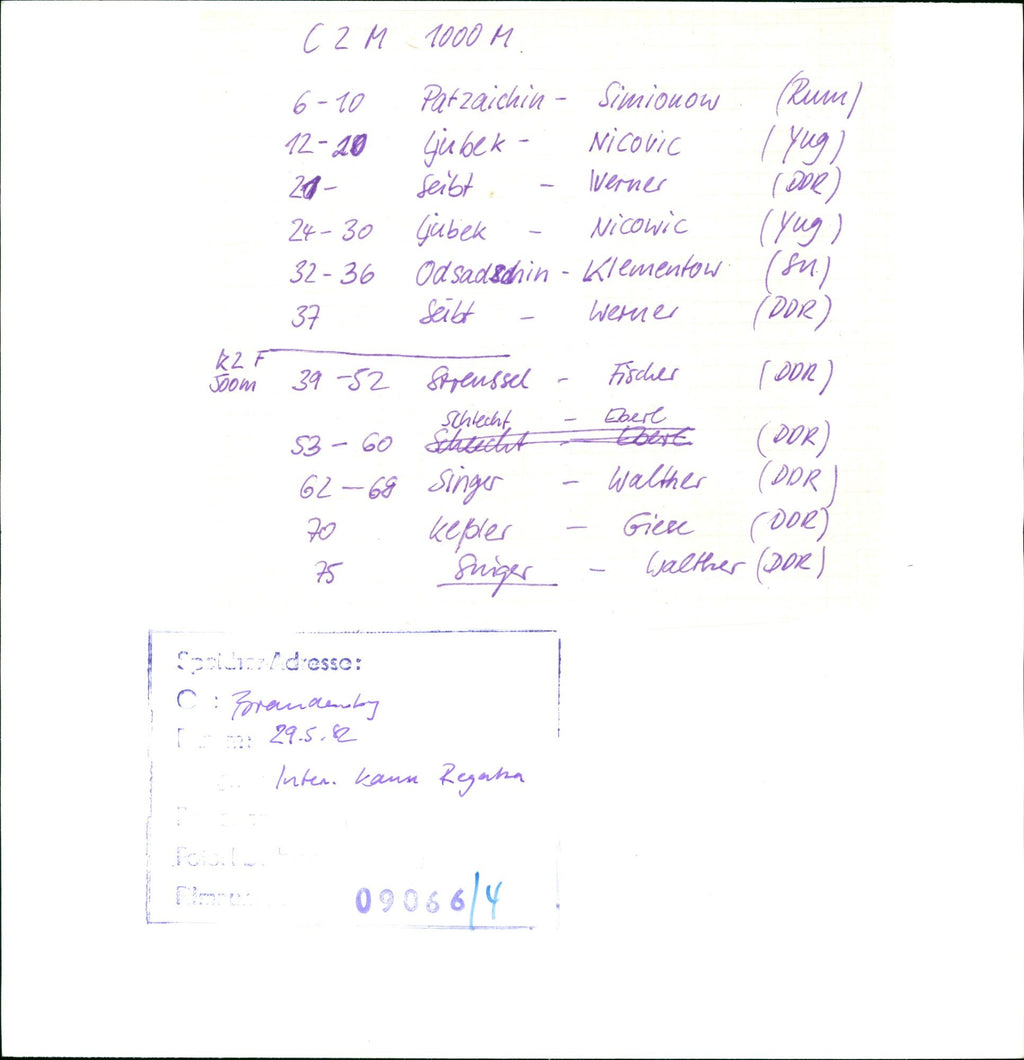 C 2 M 1000 M
6-10 Patzaichin - Simionow (Rum)
12-20 Ljubek - Nicovic (Yug)
21- Seibt - Werner (DDR)
24-30 Ljubek - Nicowic (Yug)
32-36 Odsadschin - Klementow (SU)
37 Seibt - Werner (DDR)
K2 F
500m 39-52 Streussel - Fischer (DDR)
Schlecht - Eberl
53-60 Schlecht - Eberl (DDR)
62-68 Singer - Walther (DDR)
70 Keßler - Giese (DDR)
75 Singer - Walther (DDR)
Speicher-Adresse:
: Brandenbg
29.5.82
Inter. Kanu Regatta
09066/4